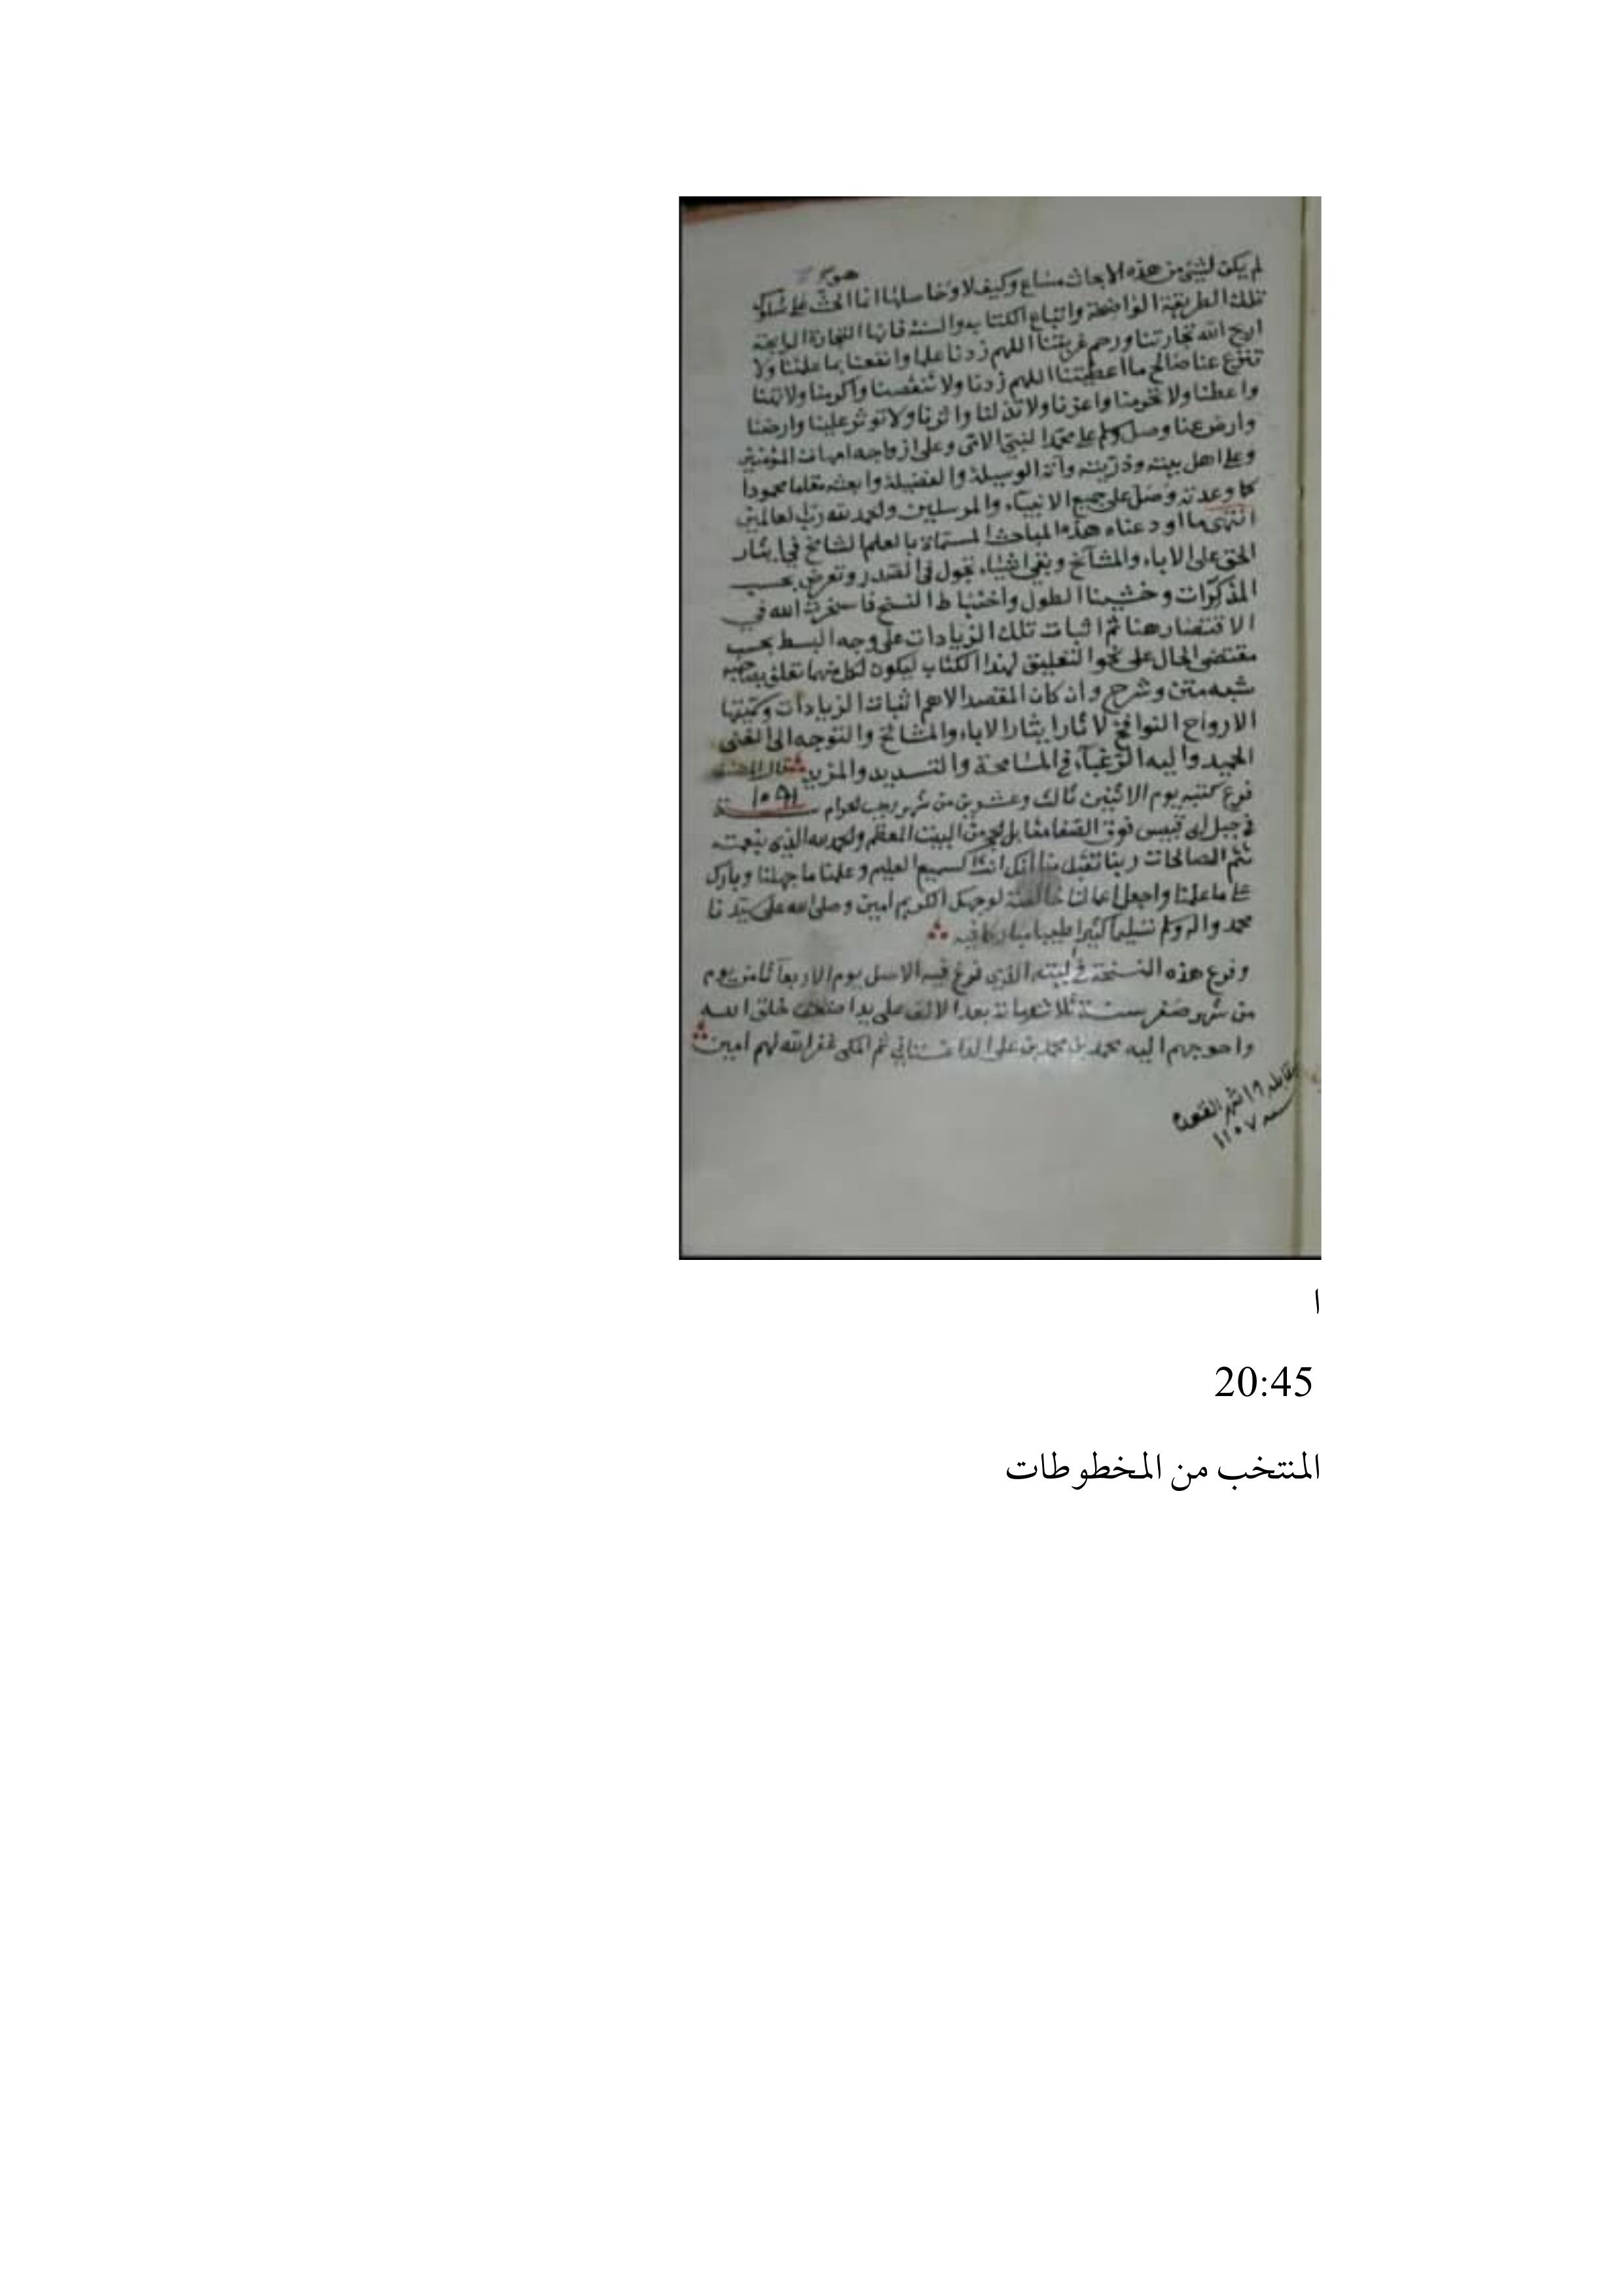 لم يكن لشيئ من هذه الابحاث مساغ وكيف لا وحاصلها انما الحث على سلوك
تلك الطريقة الواضحة واتباع الكتاب والسنة فانها التجارة الرابحة
اربح الله تجارتنا ورحم غربتنا اللهم زدنا علما وانفعنا بما علمتنا ولا
تنزع عنا صالح ما اعطيتنا اللهم زدنا ولا تنقصنا واكرمنا ولا تهنا
واعطنا ولا تحرمنا واعزنا ولا تذلنا واثرنا ولا توثر علينا وارضنا
وارض عنا وصل وسلم على محمد النبي الامي وعلى ازواجه امهات المؤمنين
وعلى اهل بيته وذريته وآته الوسيلة والفضيلة وابعثه مقاما محمودا
كما وعدته وصل على جميع الانبياء والمرسلين والحمد لله رب العالمين
انتهى ما اودعناه هذه المباحث المسماة بالعلم الشامخ في ايثار
الحق على الاباء والمشائخ وبقي اشياء تجول في الصدر وتعرض بحسب
المذكرات وخشينا الطول واختباط النسخ فاستخرت الله في
الاقتصار هنا ثم اثبات تلك الزيادات على وجه البسط بحسب
مقتضى الحال على نحو التعليق لهذا الكتاب ليكون لكل منهما تعلق بصاحبه
شبه متن وشرح وان كان المقصد الاهم اثبات الزيادات وكميتها
الارواح النوافخ لاثار ايثار الاباء والمشائخ والتوجه الى الغني
الحميد واليه الرغباء في المسامحة والتسديد والمزيد قال المصنف
فرغ كتبه يوم الاثنين ثالث وعشرين من شهر رجب الحرام سنة ١٠٩١
في جبل ابي قبيس فوق الصفا مقابل من البيت المعظم والحمد لله الذي بنعمته
تتم الصالحات ربنا تقبل منا انك انت السميع العليم وعلمنا ما جهلنا وبارك
على ما علمنا واجعل اعمالنا خالصة لوجهك الكريم امين وصلى الله على سيدنا
محمد واله وسلم تسليما كثيرا طيبا مباركا فيه
وفرغ هذه النسخة في بيته الذي فرغ فيه الاصل يوم الاربعا ثامن يوم
من شهر صفر سنة بعد الالف على يد اضعف خلق الله
واحوجهم اليه محمد بن محمد بن علي الداغستاني ثم المكي غفر الله لهم امين
مقابلة ١٩ شهر القعدة
سنه ١١٠٧
ا
20:45
المنتخب من المخطوطات